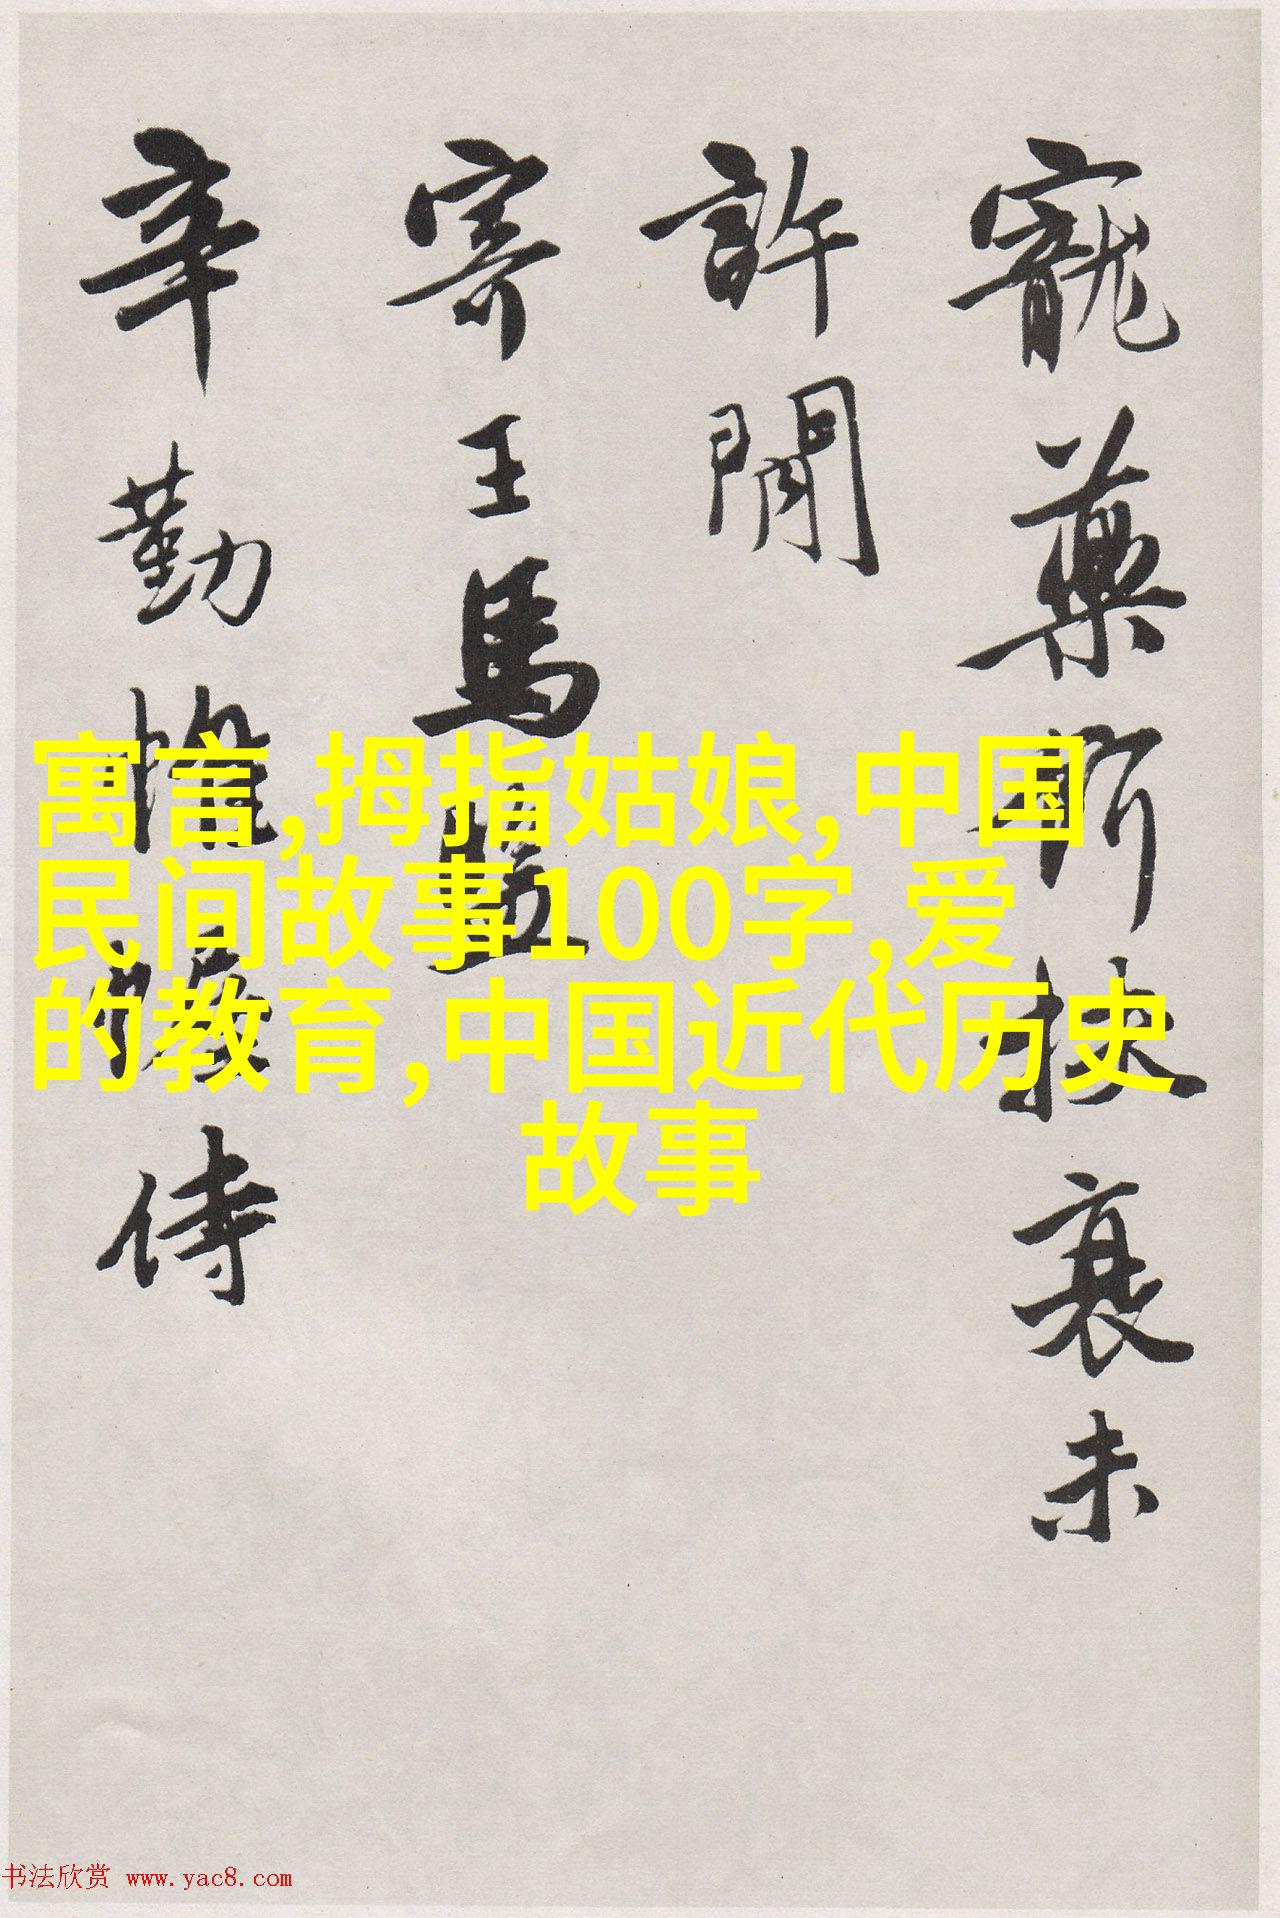 寵藥斯扶衰未
許閒
寄王馬
辛勤惟幄侍
寓言,拇指姑娘,中国
民间故事100字,爱
的教育,中国近代历史
故事
书法欣赏 www.yac8.com